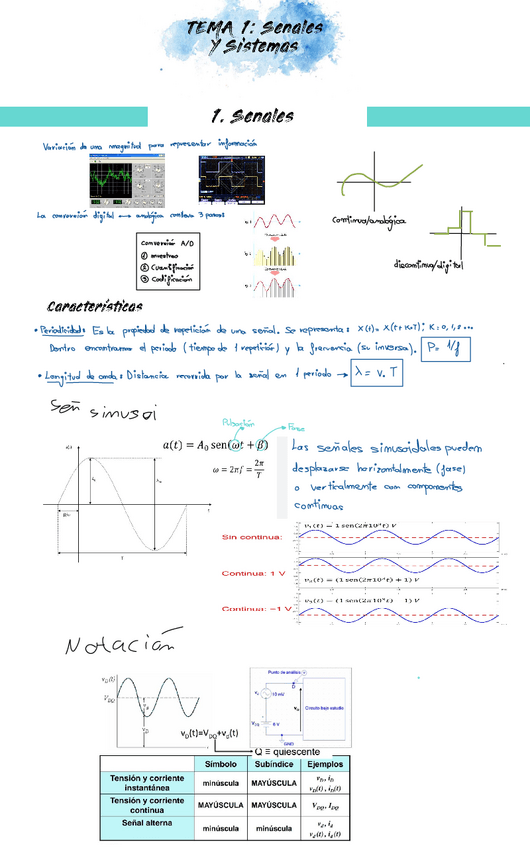 TEMA 1: Senales
Y Sistemas
1. Senales
Variación de una magnitud para representar información
La conversión digital ⟷ analógica conlleva 3 pasos
Conversión A/D
① muestreo
② Cuantificación
③ Codificación
Continua/analógica
discontinua/digital
Características
• Periodicidad: Es la propiedad de repetición de una señal. Se representa: x(t) = x(t+K·T); K: 0, 1, 2 ...
Dentro encontramos el periodo (tiempo de 1 repetición) y la frecuencia (su inversa). P = 1/f
• Longitud de onda: Distancia recorrida por la señal en 1 periodo → λ = v. T
Señ sinusoi
Pulsación
Fase
a(t) = A₀ sen(ωt + β)
ω = 2πf = 2π/T
Las señales sinusoidales pueden
desplazarse horizontalmente (fase)
o verticalmente con componentes
continuas
Sin continua:
v₁(t) = 1 sen(2π10³t) V
Continua: 1 V
(t) = (1 sen(2π10³t) + 1) V
Continua: −1 V
(t) = (1 sen(2π10³t) − 1) V
Notación
v_D(t)
V_DQ
v_D(t)=V_DQ+v_d(t)
Punto de análisis
10 mV
Circuito bajo estudio
GND
Q ≡ quiescente
Símbolo Subíndice Ejemplos
Tensión y corriente instantánea minúscula MAYÚSCULA v_D, i_D v_D(t), i_D(t)
Tensión y corriente continua MAYÚSCULA MAYÚSCULA V_DQ, I_DQ
Señal alterna minúscula minúscula v_d, i_d v_d(t), i_d(t)